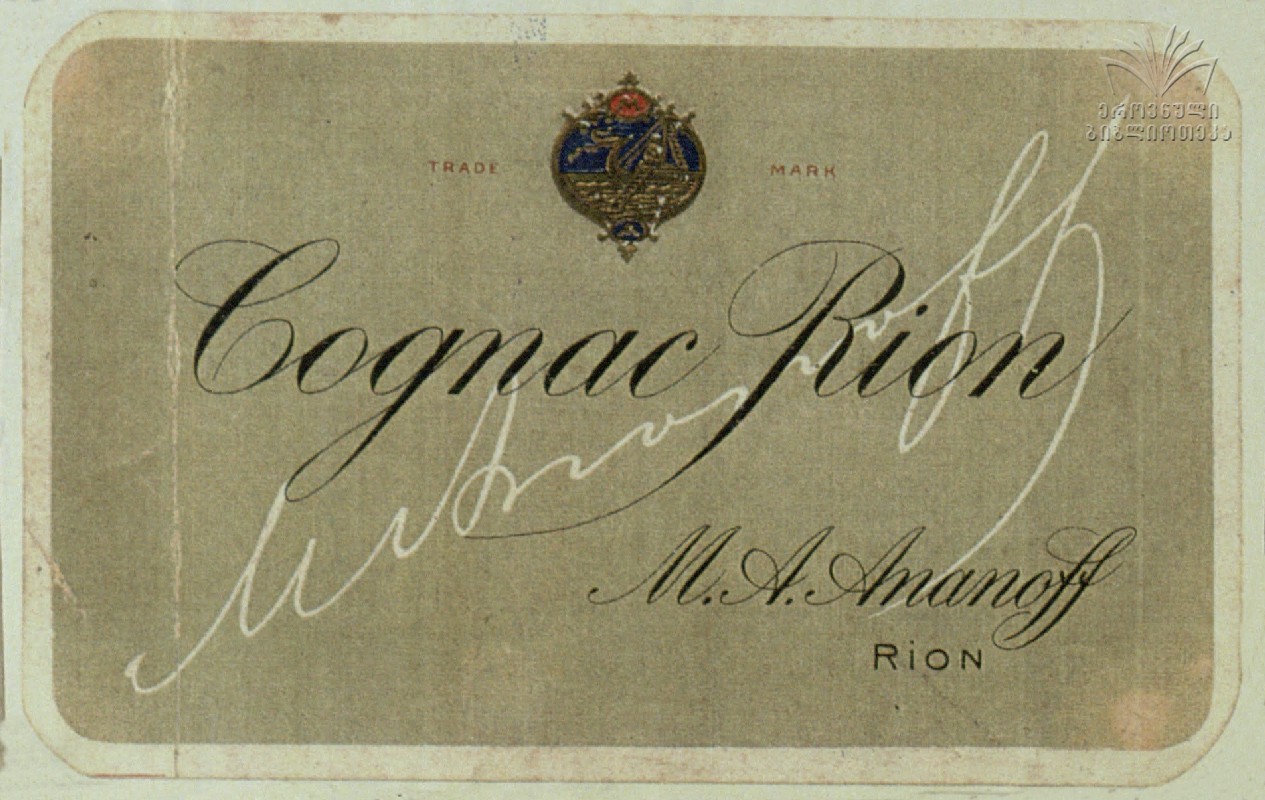 ეროვნული
ბიბლიოთეკა
TRADE MARK
Cognac Rion
M. Ananoff
M. A. Ananoff
RION